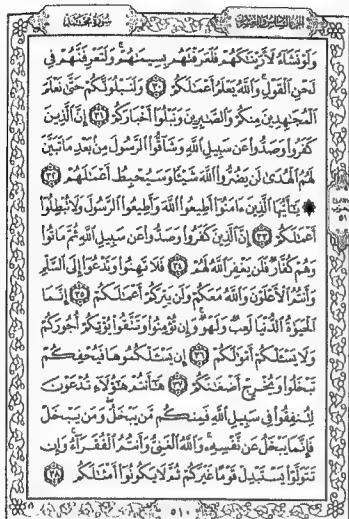 الجزء السادس والعشرون سورة محمد
وَلَوْ نَشَآءُ لَأَرَيْنَٰكَهُمْ فَلَعَرَفْتَهُم بِسِيمَٰهُمْ وَلَتَعْرِفَنَّهُمْ فِى
لَحْنِ ٱلْقَوْلِ وَٱللَّهُ يَعْلَمُ أَعْمَٰلَكُمْ ٣٠ وَلَنَبْلُوَنَّكُمْ حَتَّىٰ نَعْلَمَ
ٱلْمُجَٰهِدِينَ مِنكُمْ وَٱلصَّٰبِرِينَ وَنَبْلُوَا۟ أَخْبَارَكُمْ ٣١ إِنَّ ٱلَّذِينَ
كَفَرُوا۟ وَصَدُّوا۟ عَن سَبِيلِ ٱللَّهِ وَشَآقُّوا۟ ٱلرَّسُولَ مِنۢ بَعْدِ مَا تَبَيَّنَ
لَهُمُ ٱلْهُدَىٰ لَن يَضُرُّوا۟ ٱللَّهَ شَيْـًٔا وَسَيُحْبِطُ أَعْمَٰلَهُمْ ٣٢
۞ يَٰٓأَيُّهَا ٱلَّذِينَ ءَامَنُوٓا۟ أَطِيعُوا۟ ٱللَّهَ وَأَطِيعُوا۟ ٱلرَّسُولَ وَلَا تُبْطِلُوٓا۟
أَعْمَٰلَكُمْ ٣٣ إِنَّ ٱلَّذِينَ كَفَرُوا۟ وَصَدُّوا۟ عَن سَبِيلِ ٱللَّهِ ثُمَّ مَاتُوا۟
وَهُمْ كُفَّارٌ فَلَن يَغْفِرَ ٱللَّهُ لَهُمْ ٣٤ فَلَا تَهِنُوا۟ وَتَدْعُوٓا۟ إِلَى ٱلسَّلْمِ
وَأَنتُمُ ٱلْأَعْلَوْنَ وَٱللَّهُ مَعَكُمْ وَلَن يَتِرَكُمْ أَعْمَٰلَكُمْ ٣٥ إِنَّمَا
ٱلْحَيَوٰةُ ٱلدُّنْيَا لَعِبٌ وَلَهْوٌ وَإِن تُؤْمِنُوا۟ وَتَتَّقُوا۟ يُؤْتِكُمْ أُجُورَكُمْ
وَلَا يَسْـَٔلْكُمْ أَمْوَٰلَكُمْ ٣٦ إِن يَسْـَٔلْكُمُوهَا فَيُحْفِكُمْ
تَبْخَلُوا۟ وَيُخْرِجْ أَضْغَٰنَكُمْ ٣٧ هَٰٓأَنتُمْ هَٰٓؤُلَآءِ تُدْعَوْنَ
لِتُنفِقُوا۟ فِى سَبِيلِ ٱللَّهِ فَمِنكُم مَّن يَبْخَلُ وَمَن يَبْخَلْ
فَإِنَّمَا يَبْخَلُ عَن نَّفْسِهِۦ وَٱللَّهُ ٱلْغَنِىُّ وَأَنتُمُ ٱلْفُقَرَآءُ وَإِن
تَتَوَلَّوْا۟ يَسْتَبْدِلْ قَوْمًا غَيْرَكُمْ ثُمَّ لَا يَكُونُوٓا۟ أَمْثَٰلَكُم ٣٨
٥١٠